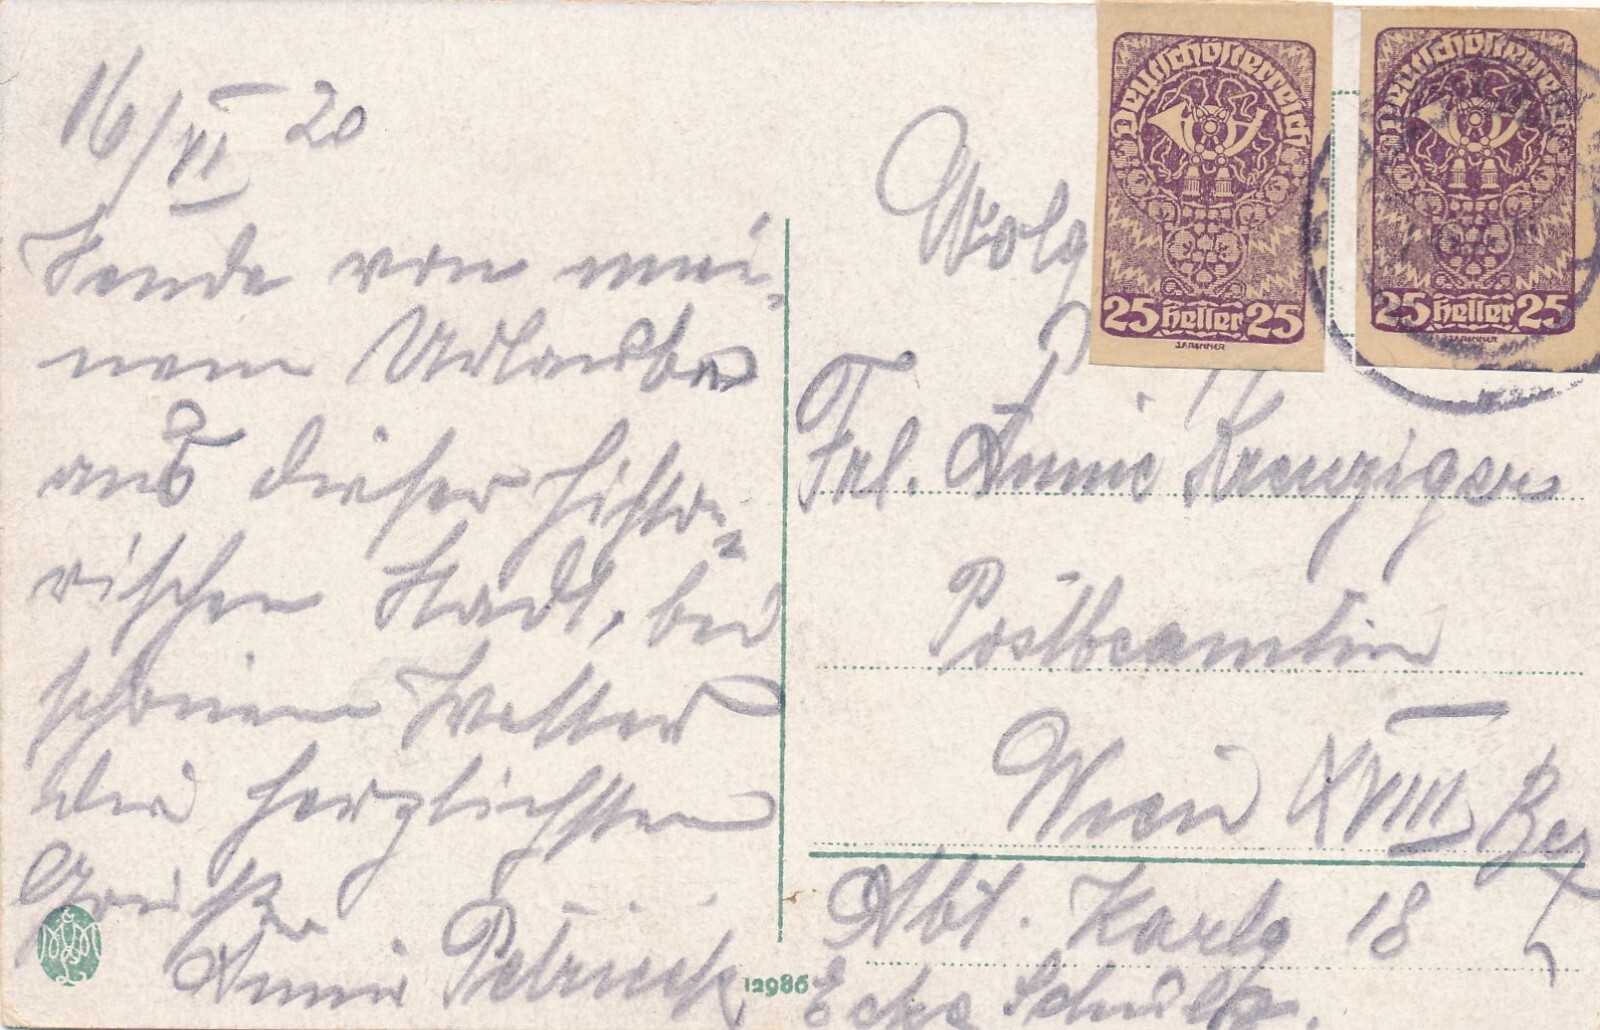 16/VI 20
Sende von mei-
nem Urlaube
aus dieser histo-
rischen Stadt, bei
schönem Wetter
die herzlichsten
Grüße
Annie
12986
Deutschösterreich
25 Heller 25
J.F.RENNER
Deutschösterreich
25 Heller 25
J.F.RENNER
Wolg
Frl. Annie Kreuziger
Postbeamtin
Wien XVIII Bez
Abt. Karls 18
Ecke Schulg.